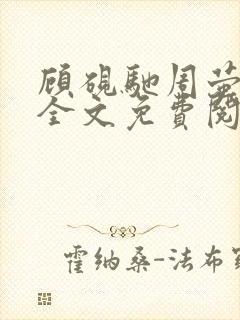 顾砚驰周萤
全文免費閱
霍纳桑-法布